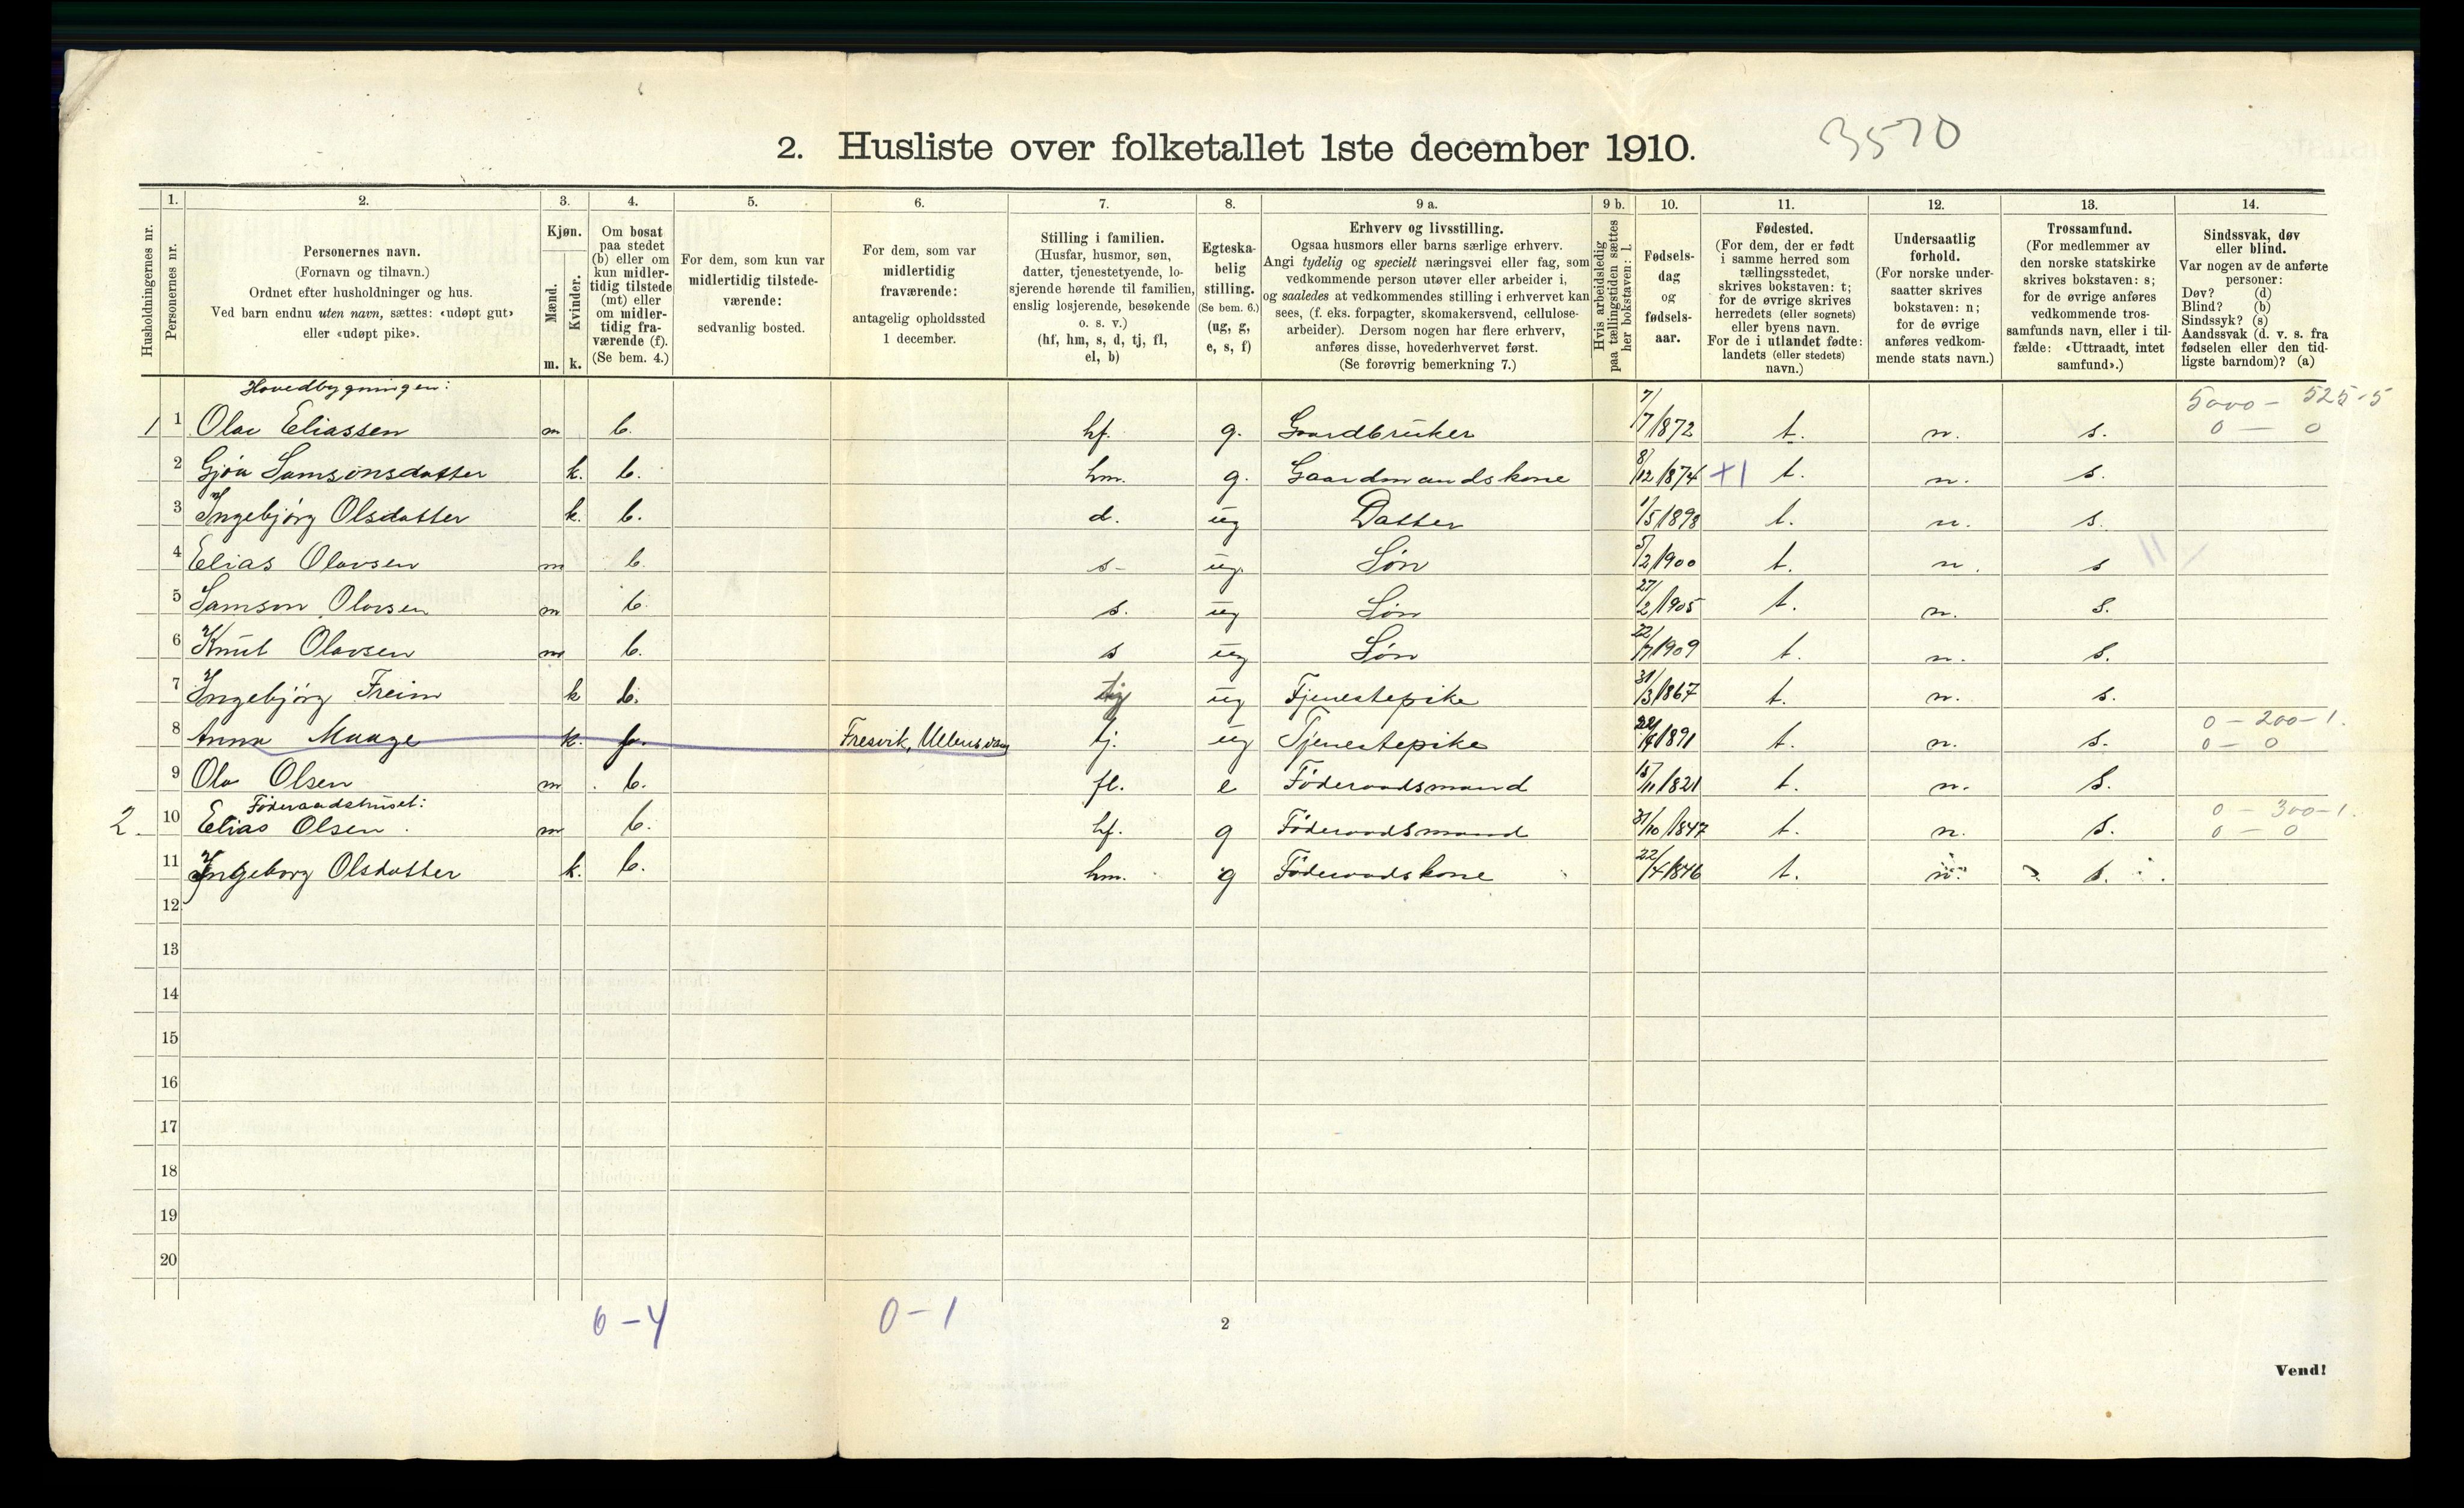 2. Husliste over folketallet 1ste december 1910.
3570
Husholdningernes nr.
1.
Personernes nr.
2.
Personernes navn.
(Fornavn og tilnavn.)
Ordnet efter husholdninger og hus.
Ved barn endnu uten navn, sættes: «udøpt gut»
eller «udøpt pike».
3.
Kjøn.
Mænd.
Kvinder.
m. k.
4.
Om bosat
paa stedet
(b) eller om
kun midler-
tidig tilstede
(mt) eller
om midler-
tidig fra-
værende (f).
(Se bem. 4.)
5.
For dem, som kun var
midlertidig tilstede-
værende:
sedvanlig bosted.
6.
For dem, som var
midlertidig
fraværende:
antagelig opholdssted
1 december.
7.
Stilling i familien.
(Husfar, husmor, søn,
datter, tjenestetyende, lo-
sjerende hørende til familien,
enslig losjerende, besøkende
o. s. v.)
(hf, hm, s, d, tj, fl,
el, b)
8.
Egteska-
belig
stilling.
(Se bem. 6.)
(ug, g,
e, s, f)
9 a.
Erhverv og livsstilling.
Ogsaa husmors eller barns særlige erhverv.
Angi tydelig og specielt næringsvei eller fag, som
vedkommende person utøver eller arbeider i,
og saaledes at vedkommendes stilling i erhvervet kan
sees, (f. eks. forpagter, skomakersvend, cellulose-
arbeider). Dersom nogen har flere erhverv,
anføres disse, hovederhvervet først.
(Se forøvrig bemerkning 7.)
9 b.
Hvis arbeidsledig
paa tællingstiden sættes
her bokstaven: l.
10.
Fødsels-
dag
og
fødsels-
aar.
11.
Fødested.
(For dem, der er født
i samme herred som
tællingsstedet,
skrives bokstaven: t;
for de øvrige skrives
herredets (eller sognets)
eller byens navn.
For de i utlandet fødte:
landets (eller stedets)
navn.)
12.
Undersaatlig
forhold.
(For norske under-
saatter skrives
bokstaven: n;
for de øvrige
anføres vedkom-
mende stats navn.)
13.
Trossamfund.
(For medlemmer av
den norske statskirke
skrives bokstaven: s;
for de øvrige anføres
vedkommende tros-
samfunds navn, eller i til-
fælde: «Uttraadt, intet
samfund».)
14.
Sindssvak, døv
eller blind.
Var nogen av de anførte
personer:
Døv? (d)
Blind? (b)
Sindssyk? (s)
Aandssvak (d. v. s. fra
fødselen eller den tid-
ligste barndom)? (a)
Hovedbygningen:
5000 - 525-5
1 1 Olav Eliassen m b. hf. g. Gaardbruker 7/7 1872 t. n. s. 0 - 0
2 Gjøa Samsonsdatter k. b. hm. g. Gaardmandskone 8/12 1874 +1 t. n. s.
3 Ingebjørg Olsdatter k. b. d. ug Datter 1/5 1898 t. n. s.
4 Elias Olavsen m b. s- ug. Søn 5/2 1900 t. n. s
5 Samson Olavsen m b. s. ug Søn 27/2 1905 t. n. s.
6 Knut Olavsen m b. s ug Søn 22/7 1909 t. n. s.
7 Ingebjørg Freim k b. tj ug Tjenestepike 31/3 1867 t. n. s.
0 - 200-1.
8 Anna Maage k. f. Fresvik, Ullensvang tj. ug Tjenestepike 1891 t. n. s. 0 - 0
9 Ola Olsen m b. fl. e Føderaadsmand 15/11 1821 t. n. s.
Føderaadshuset:
0 - 300-1.
2. 10 Elias Olsen m b. hf. g Føderaadsmand 31/10 1847 t. n. s. 0 - 0
11 Ingeborg Olsdatter k. b. hm. g Føderaadskone 22/4 1846 t. n. s.
12
13
14
15
16
17
18
19
20
6-4
0-1
2
Vend!